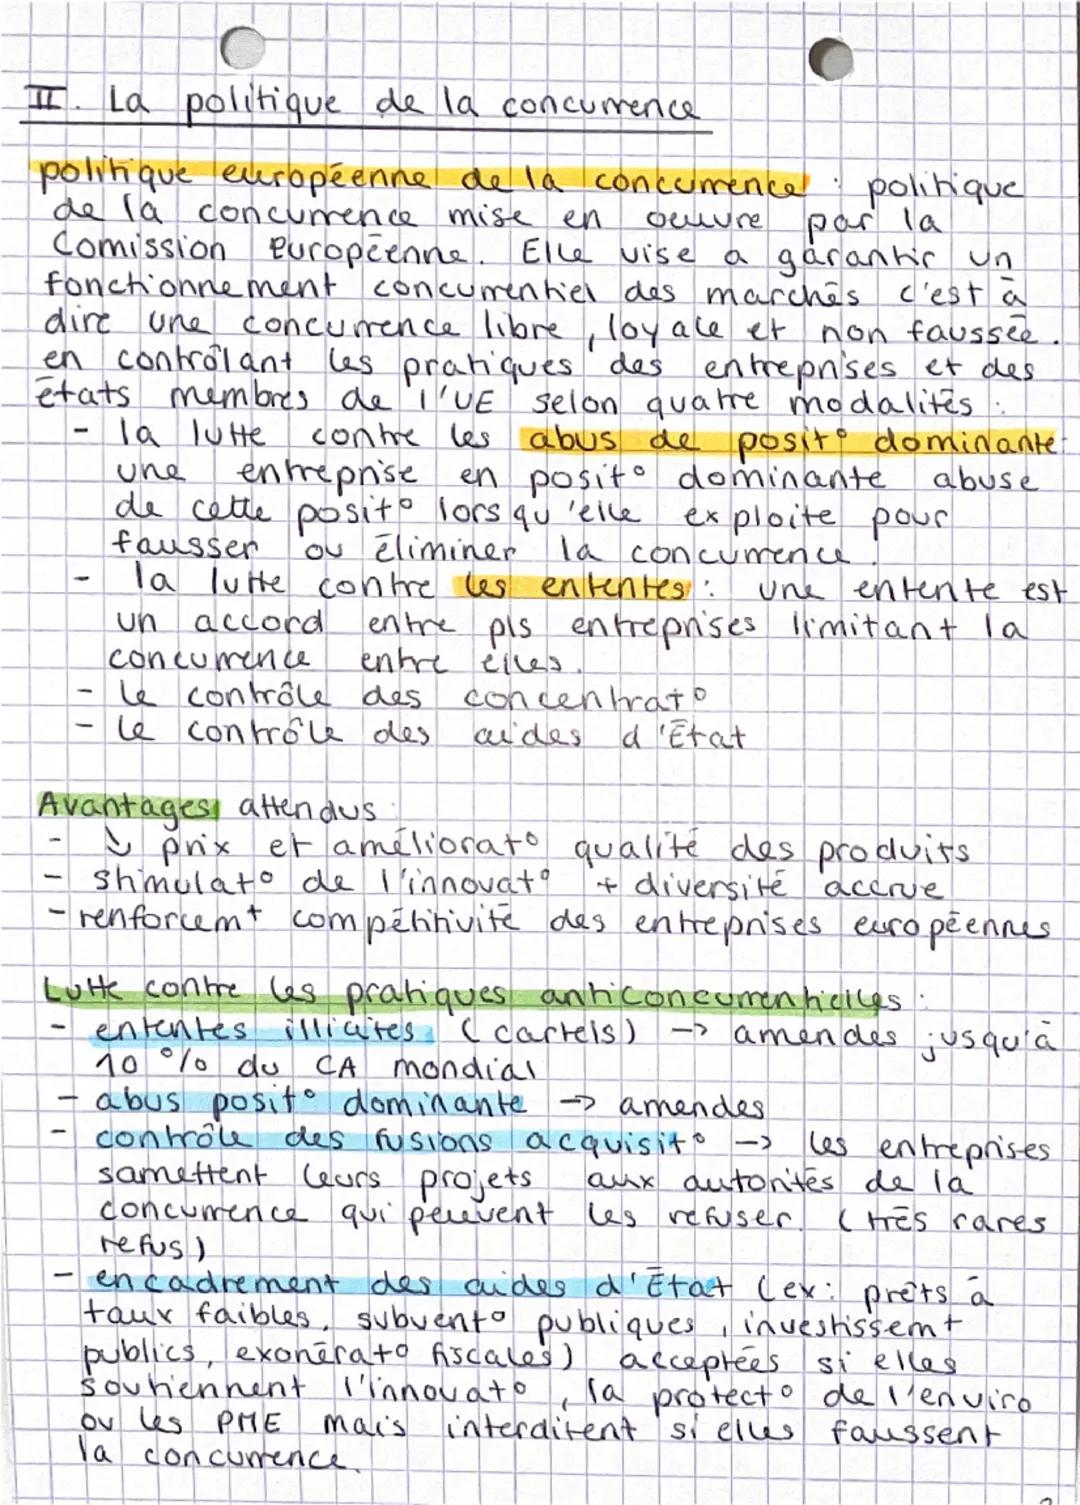 II. La politique de la concurrence
politique européenne de la concurrence : politique
de la concurrence mise en oeuvre par la
Comission européenne. Elle vise a garantir un
fonctionnement concurrentiel des marchés c'est à
dire une concurrence libre, loyale et non faussée.
en contrôlant les pratiques des entreprises et des
états membres de l'UE selon quatre modalités :
- la lutte contre les abus de posit° dominante:
une entreprise en posit° dominante abuse
de cette posit° lorsqu'elle exploite pour
fausser ou éliminer la concurrence.
- la lutte contre les ententes : une entente est
un accord entre pls entreprises limitant la
concurrence entre elles.
- le contrôle des concentrat°
- le contrôle des aides d'État
Avantages attendus :
- ↘ prix et améliorat° qualité des produits
- stimulat° de l'innovat° + diversité accrue
- renforcemt compétitivité des entreprises européennes
Lutte contre les pratiques anticoncurrentielles :
- ententes illicites (cartels) → amendes jusqu'à
10 % du CA mondial
- abus posit° dominante → amendes
- contrôle des fusions acquisit° → les entreprises
samettent leurs projets aux autorités de la
concurrence qui peuvent les refuser. (très rares
refus)
- encadrement des aides d'État (ex: prêts à
taux faibles, subvent° publiques, investissemt
publics, exonérat° fiscales) acceptées si elles
soutiennent l'innovat°, la protect° de l'enviro
ou les PME mais interditent si elles faussent
la concurrence.